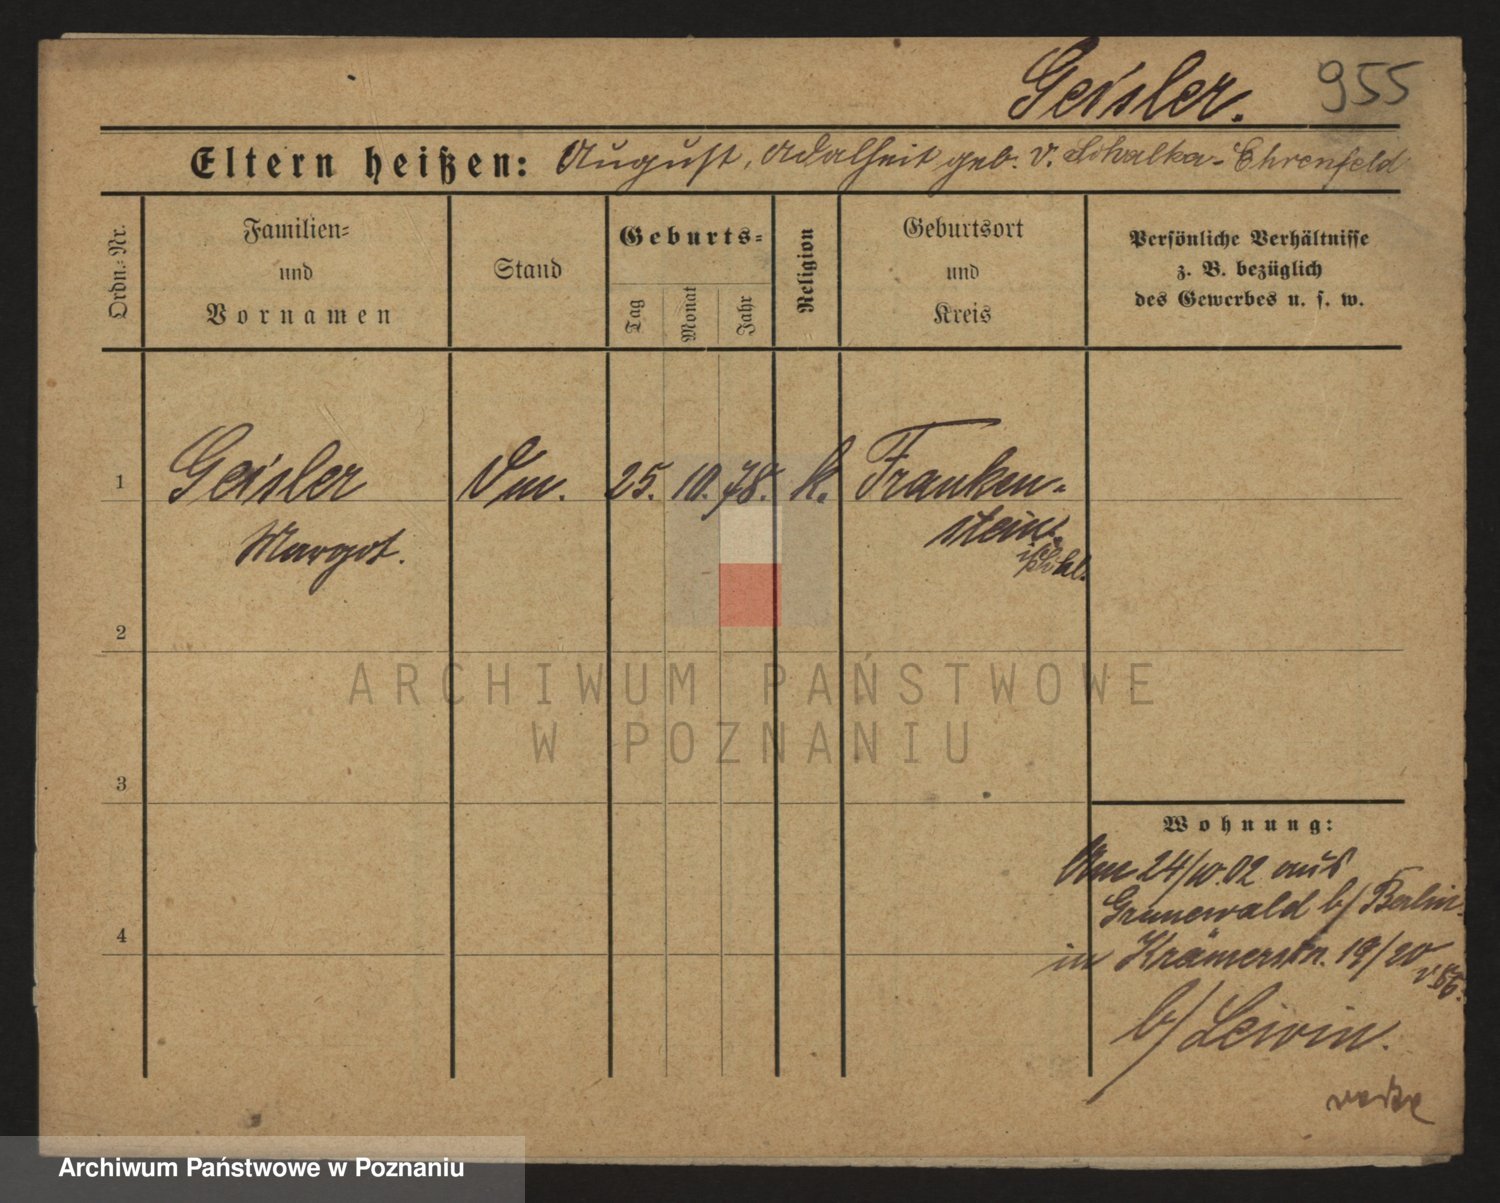 Geisler. 955
Eltern heißen: August, Adalheit geb. v. Schalka-Ehrenfeld
Ordn.-Nr.
Familien-
und
Vornamen
Stand
Geburts-
Tag
Monat
Jahr
Religion
Geburtsort
und
Kreis
Persönliche Verhältnisse
z. B. bezüglich
des Gewerbes u. s. w.
1 Geisler 25. 10. 78. k. Franken-
Margot. stein.
2
ARCHIWUM PAŃSTWOWE
W POZNANIU
3
Wohnung:
Am 24/10.02 aus
Grunewald b/ Berlin.
4
in Krämerstr. 19/20
b/ Lewin.
Archiwum Państwowe w Poznaniu